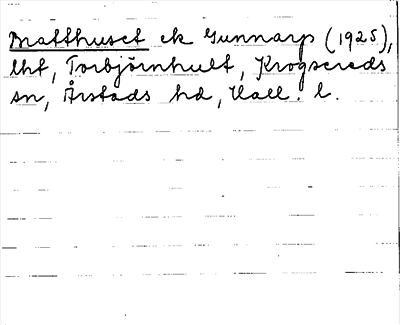 Matthuset ek Gunnarp (1925),
lht, Torbjörnhult, Krogsereds
sn, Årstads hd, Hall. l.